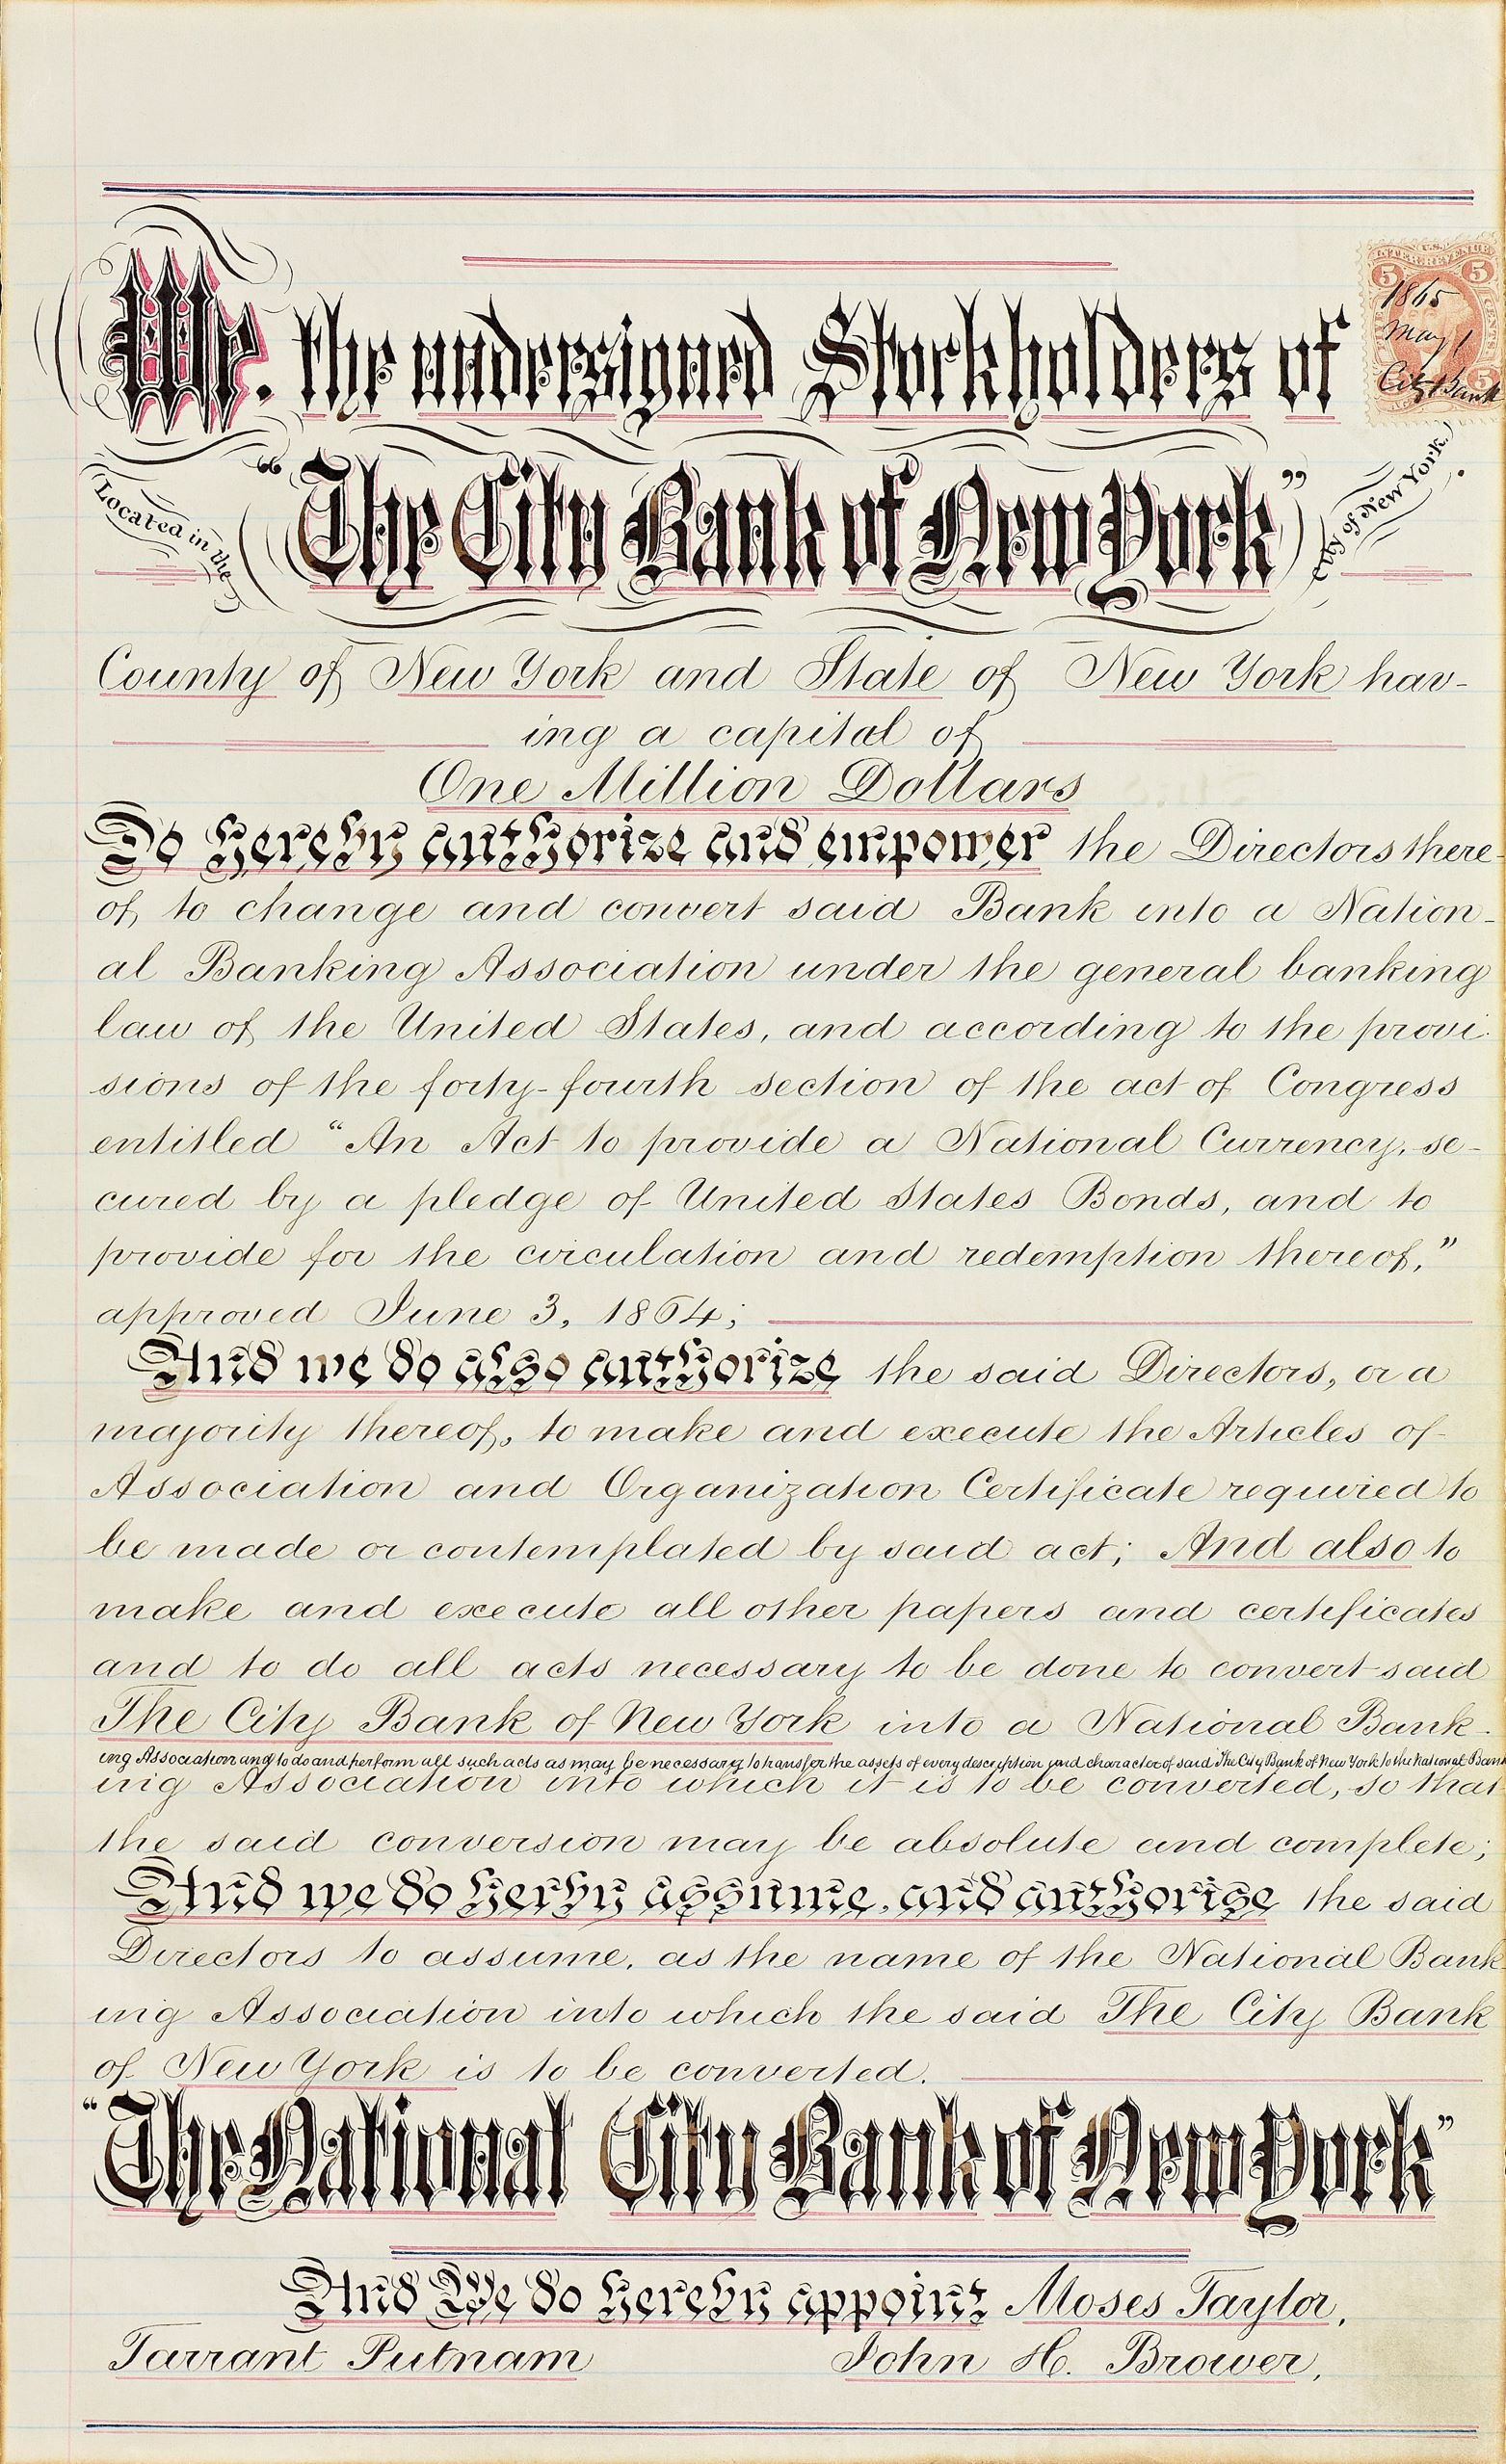 We, the undersigned Stockholders of
5 5
U.S. INTER. REVENUE
CENTS
5
1865
May 1
City Bank
Located in the
"The City Bank of New York"
City of New York.
County of New York and State of New York hav-
ing a capital of
One Million Dollars
Do hereby authorize and empower the Directors there-
of, to change and convert said Bank into a Nation-
al Banking Association under the general banking
law of the United States, and according to the provi-
sions of the forty-fourth section of the act of Congress
entitled "An Act to provide a National Currency, se-
cured by a pledge of United States Bonds, and to
provide for the circulation and redemption thereof,"
approved June 3, 1864;
And we do also authorize the said Directors, or a
majority thereof, to make and execute the Articles of
Association and Organization Certificate required to
be made or contemplated by said act; And also to
make and execute all other papers and certificates
and to do all acts necessary to be done to convert said
The City Bank of New York into a National Bank-
ing Association and to do and perform all such acts as may be necessary to transfer the assets of every description and character of said The City Bank of New York to the National Bank
ing Association into which it is to be converted, so that
the said conversion may be absolute and complete;
And we do herby assume, and authorise the said
Directors to assume, as the name of the National Bank-
ing Association into which the said The City Bank
of New York is to be converted.
"The National City Bank of New York"
And We do hereby appoint Moses Taylor,
Tarrant Putnam John H. Brower,